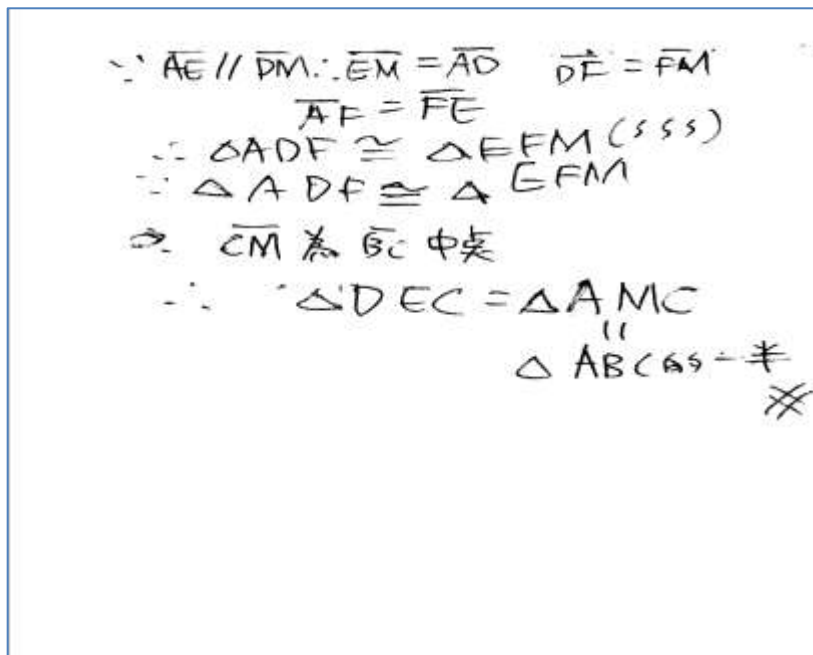 ∵ AE // DM ∴ EM = AD DF = FM
AF = FE
∴ △ADF ≅ △EFM (SSS)
∵ △ADF ≅ △EFM
⇒ CM 為 BC 中点
∴ △DEC = △AMC
=
△ABC的一半